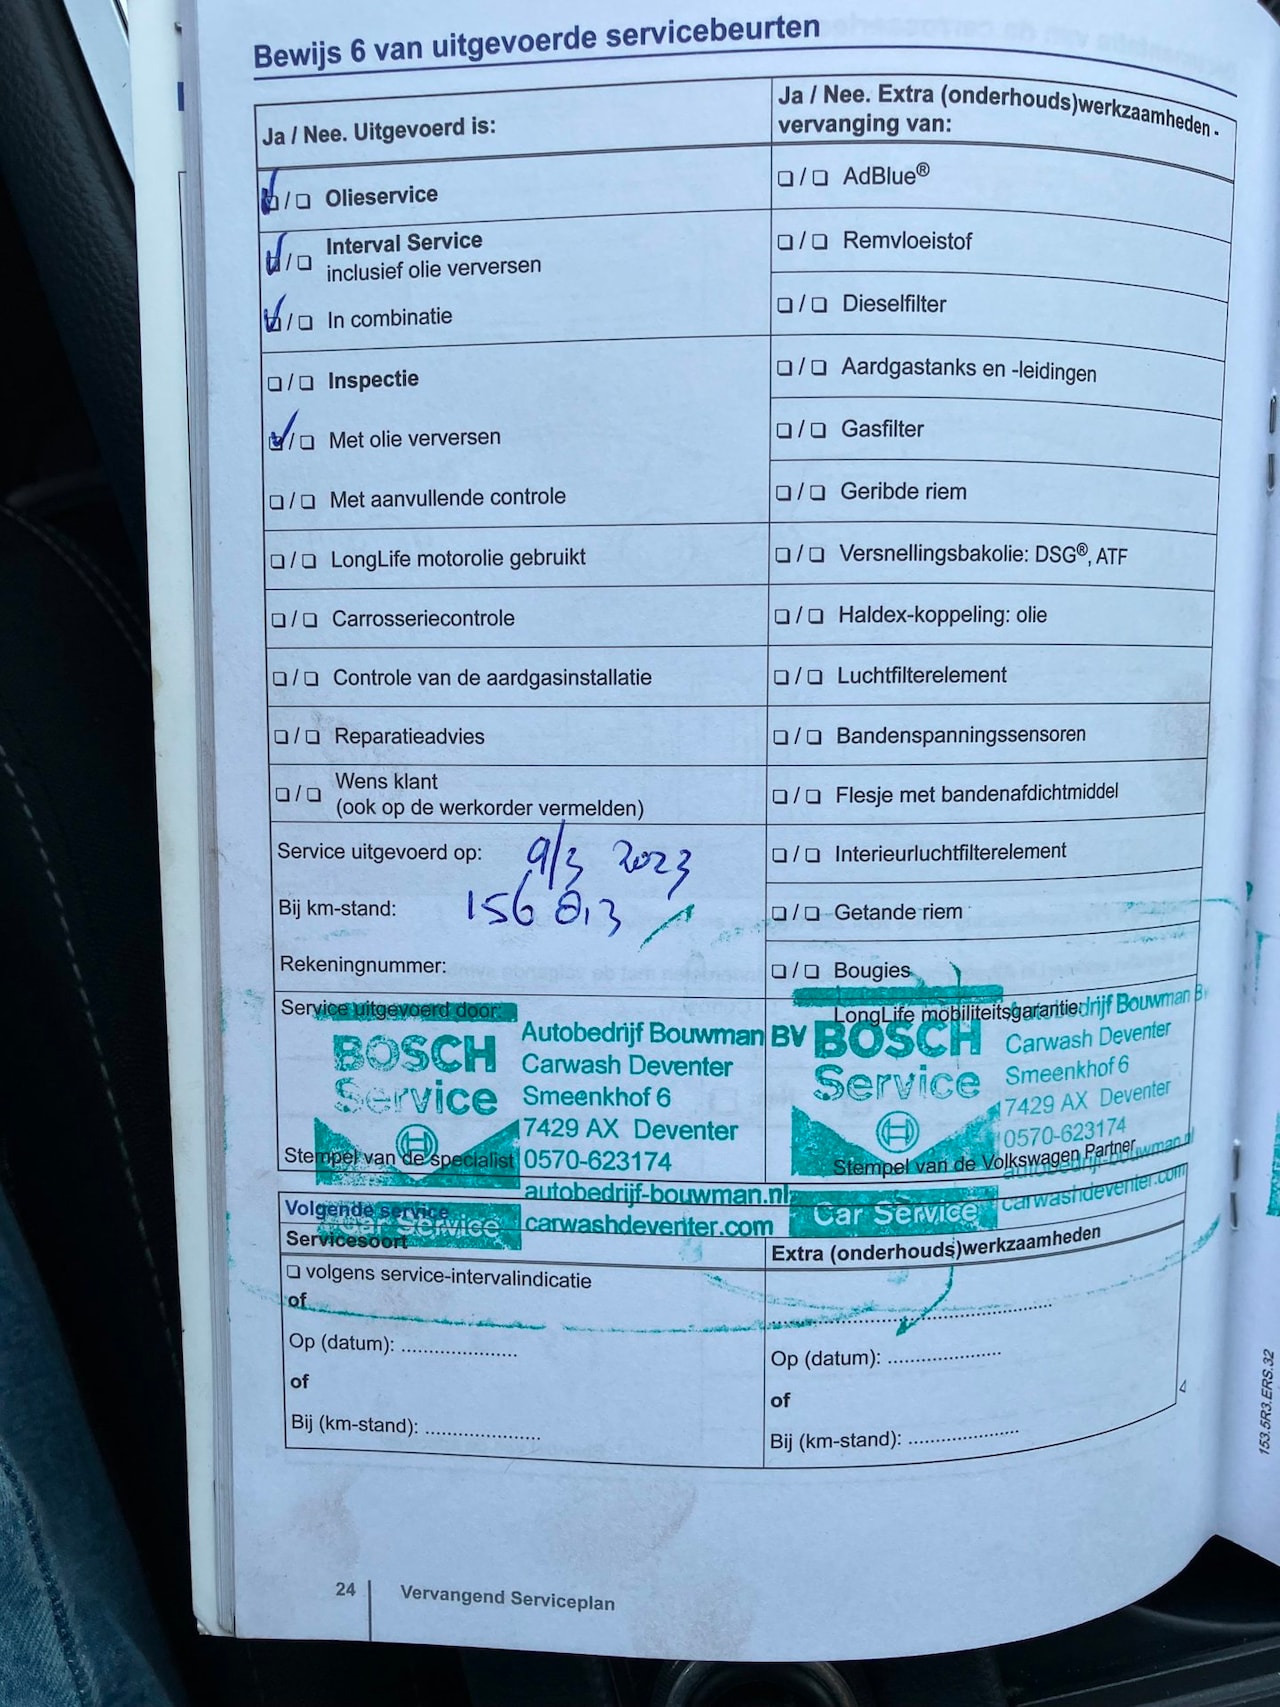 Bewijs 6 van uitgevoerde servicebeurten
Ja / Nee. Uitgevoerd is:
❏ / ❏ Olieservice
❏ / ❏ Interval Service
inclusief olie verversen
❏ / ❏ In combinatie
❏ / ❏ Inspectie
❏ / ❏ Met olie verversen
❏ / ❏ Met aanvullende controle
❏ / ❏ LongLife motorolie gebruikt
❏ / ❏ Carrosseriecontrole
❏ / ❏ Controle van de aardgasinstallatie
❏ / ❏ Reparatieadvies
❏ / ❏ Wens klant
(ook op de werkorder vermelden)
Service uitgevoerd op: 9/3 2023
Bij km-stand: 156 813
Rekeningnummer:
Service uitgevoerd door:
BOSCH
Service
Autobedrijf Bouwman BV
Carwash Deventer
Smeenkhof 6
7429 AX Deventer
0570-623174
Stempel van de specialist
autobedrijf-bouwman.nl
carwashdeventer.com
Car Service
Ja / Nee. Extra (onderhouds)werkzaamheden -
vervanging van:
❏ / ❏ AdBlue®
❏ / ❏ Remvloeistof
❏ / ❏ Dieselfilter
❏ / ❏ Aardgastanks en -leidingen
❏ / ❏ Gasfilter
❏ / ❏ Geribde riem
❏ / ❏ Versnellingsbakolie: DSG®, ATF
❏ / ❏ Haldex-koppeling: olie
❏ / ❏ Luchtfilterelement
❏ / ❏ Bandenspanningssensoren
❏ / ❏ Flesje met bandenafdichtmiddel
❏ / ❏ Interieurluchtfilterelement
❏ / ❏ Getande riem
❏ / ❏ Bougies
LongLife mobiliteitsgarantie:
BOSCH
Service
Autobedrijf Bouwman BV
Carwash Deventer
Smeenkhof 6
7429 AX Deventer
0570-623174
Stempel van de Volkswagen Partner
autobedrijf-bouwman.nl
carwashdeventer.com
Car Service
Volgende service
Servicesoort
❏ volgens service-intervalindicatie
of
Op (datum): ....................
of
Bij (km-stand): ....................
Extra (onderhouds)werkzaamheden
..................................................
Op (datum): ....................
of
Bij (km-stand): ....................
153.5R3.ERS.32
24 Vervangend Serviceplan